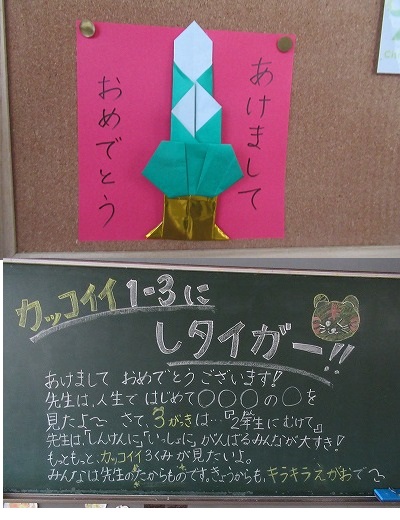 あけまして
おめでとう
カッコイイ1-3に
しタイガー!!
あけまして おめでとうございます!!
先生は、人生で はじめて〇〇〇の〇を
見たよ〜 さて、3がっきは…『2年生にむけて』
先生は、「しんけんに」「いっしょに」がんばるみんなが大すき!
もっともっと、カッコイイ3くみが見たいよ。
みんなは先生のたからものです。きょうからも、キラキラえがおで〜